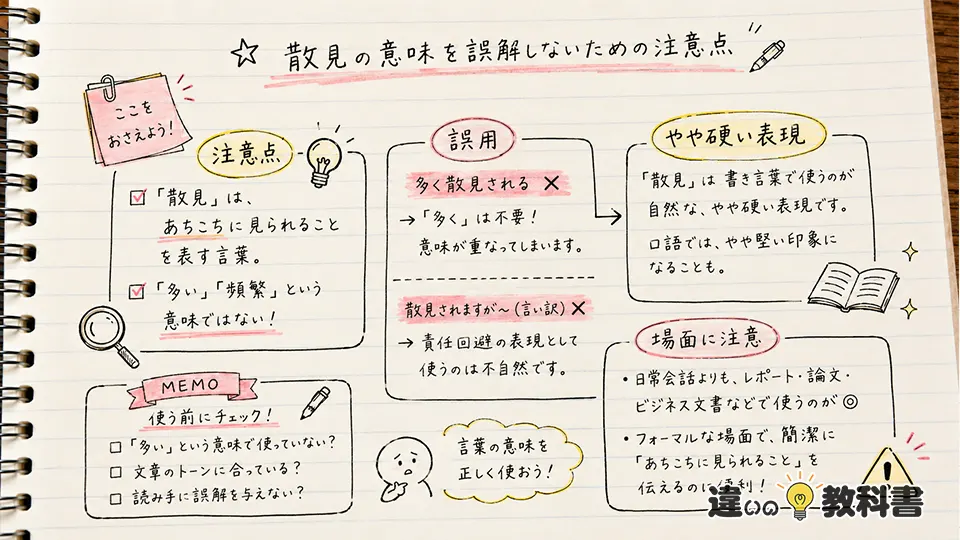 散見の意味を誤解しないための注意点
ここを
おさえよう!
注意点
「散見」は、
あちこちに見られること
を表す言葉。
「多い」「頻繁」という
意味ではない!
誤用
多く散見される ×
→「多く」は不要!
意味が重なってしまいます。
散見されますが〜(言い訳)×
→ 責任回避の表現として
使うのは不自然です。
やや硬い表現
「散見」は 書き言葉で使うのが
自然な、やや硬い表現です。
口語では、やや堅い印象に
なることも。
場面に注意
・日常会話よりも、レポート・論文・
ビジネス文書などで使うのが ◎
・フォーマルな場面で、簡潔に
「あちこちに見られること」を
伝えるのに便利!
MEMO
使う前にチェック!
□「多い」という意味で使っていない?
□ 文章のトーンに合っている?
□ 読み手に誤解を与えない?
言葉の意味を
正しく使おう!
違いの教科書